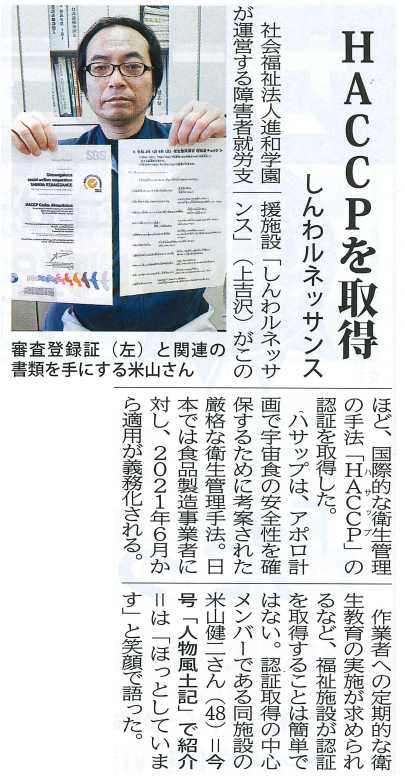 HACCPを取得
しんわルネッサンス
社会福祉法人進和学園
が運営する障害者就労支
援施設「しんわルネッサ
ンス」（上吉沢）がこの
ほど、国際的な衛生管理
の手法「HACCP」の
ハサップ
認証を取得した。
ハサップは、アポロ計
画で宇宙食の安全性を確
保するために考案された
厳格な衛生管理手法。日
本では食品製造事業者に
対し、2021年6月か
ら適用が義務化される。
作業者への定期的な衛
生教育の実施が求められ
るなど、福祉施設が認証
を取得することは簡単で
はない。認証取得の中心
メンバーである同施設の
米山健二さん（48）＝今
号「人物風土記」で紹介
＝は「ほっとしていま
す」と笑顔で語った。
審査登録証（左）と関連の
書類を手にする米山さん
SGS